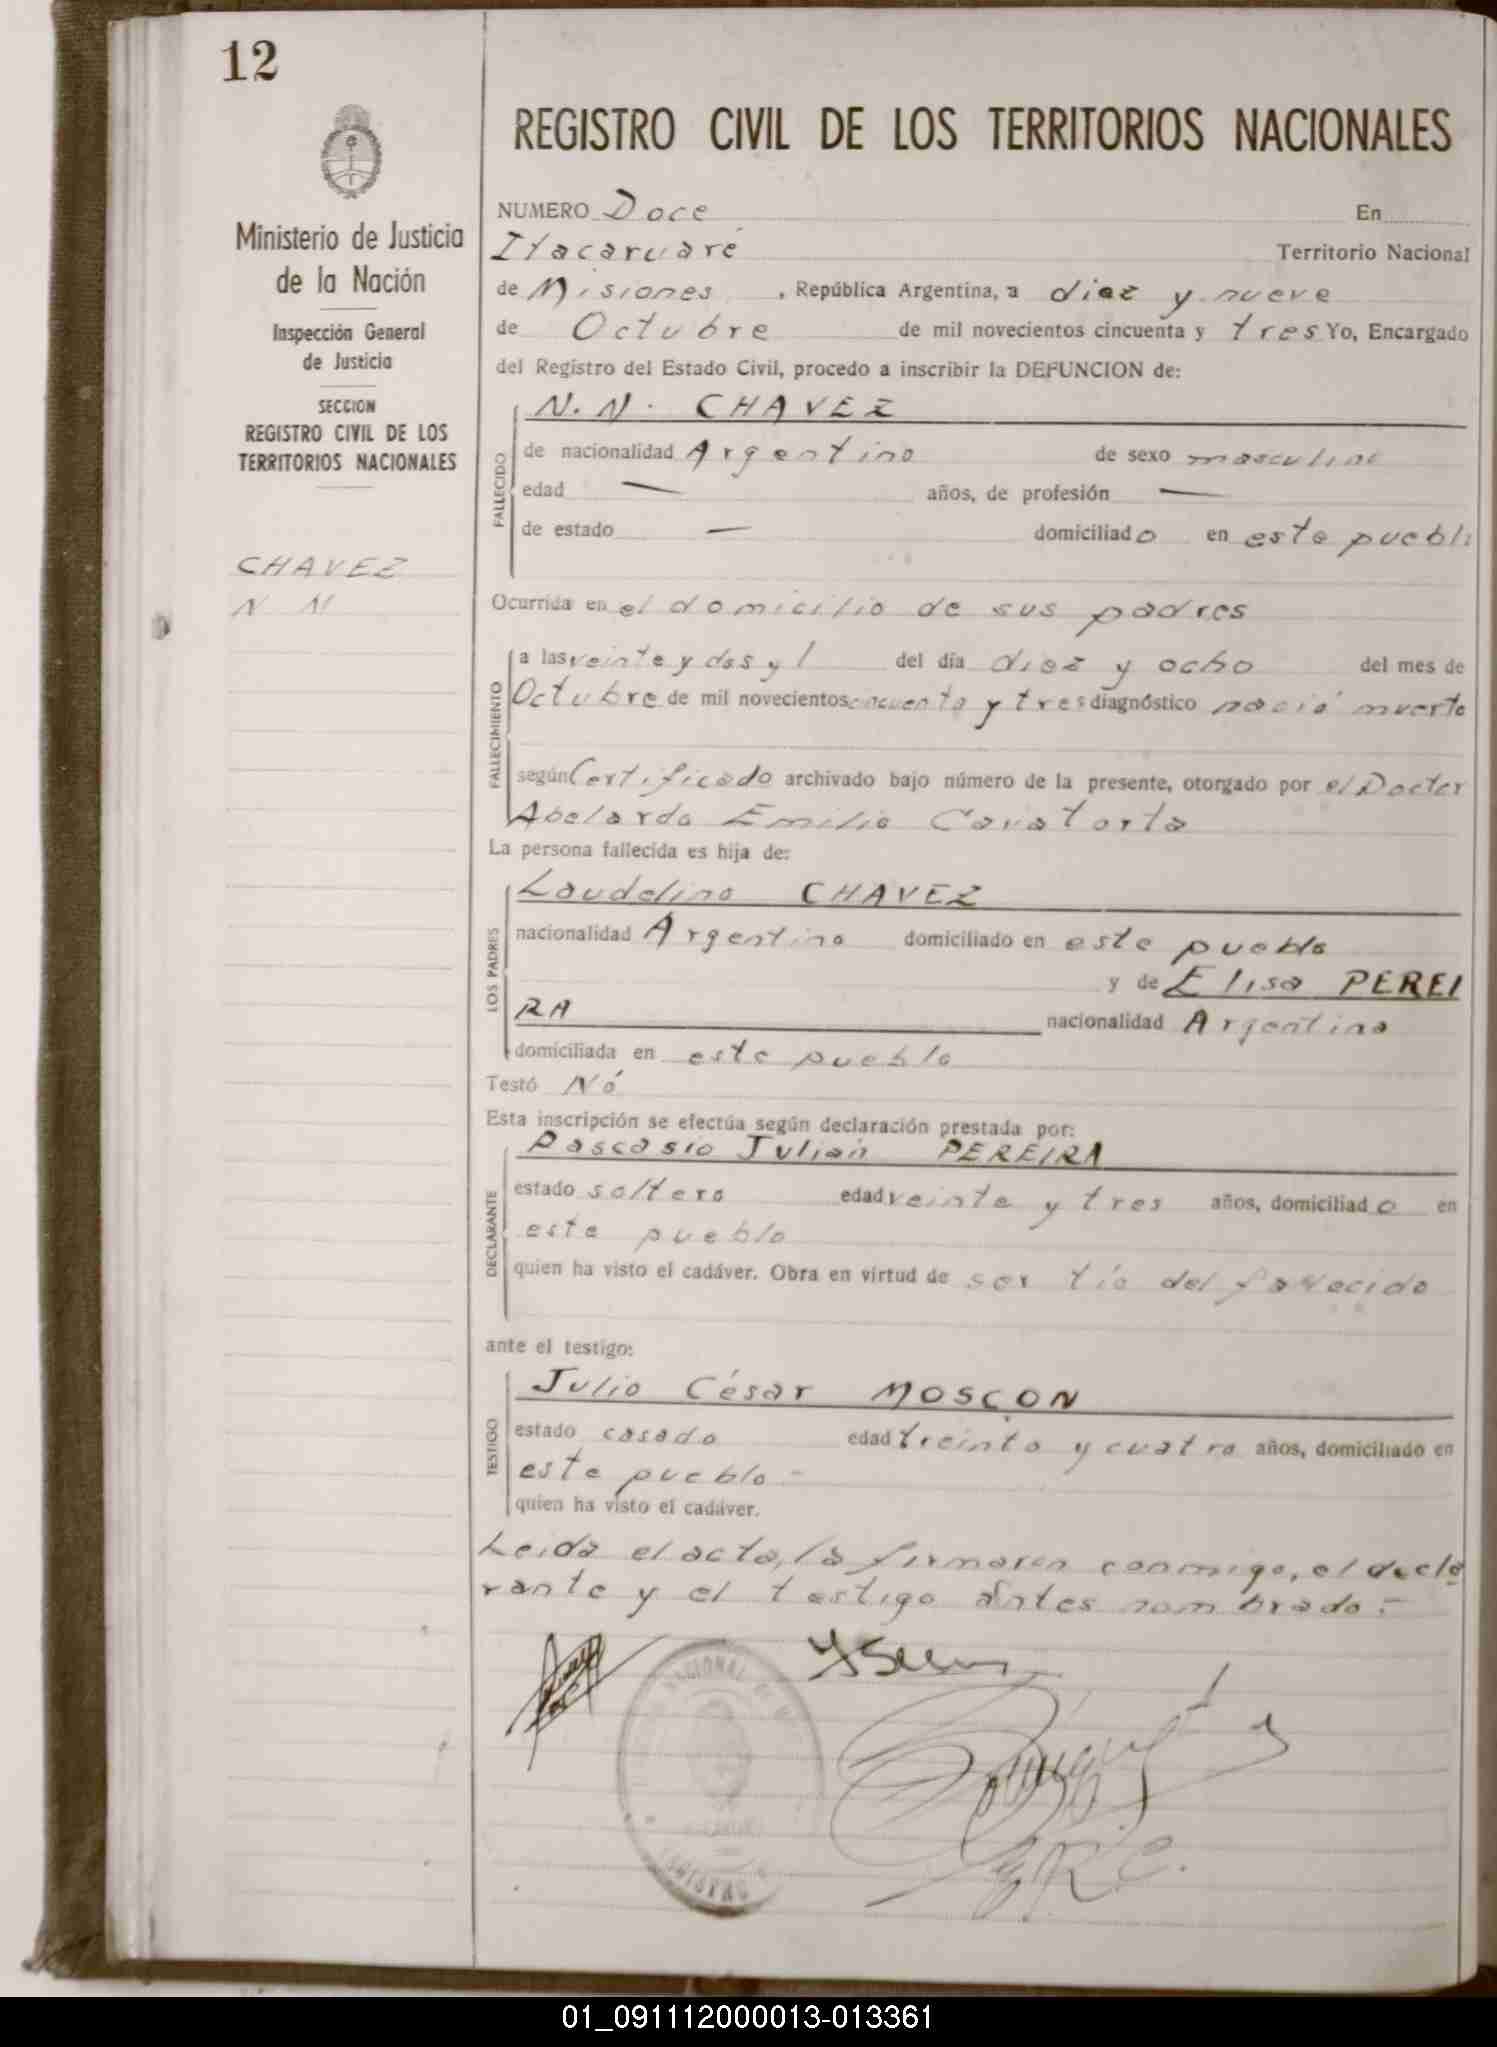 12
Ministerio de Justicia
de la Nación
Inspección General
de Justicia
SECCION
REGISTRO CIVIL DE LOS
TERRITORIOS NACIONALES
CHAVEZ
N N
REGISTRO CIVIL DE LOS TERRITORIOS NACIONALES
NUMERO Doce En
Itacaruaré Territorio Nacional
de Misiones , República Argentina, a diez y nueve
de Octubre de mil novecientos cincuenta y tres Yo, Encargado
del Registro del Estado Civil, procedo a inscribir la DEFUNCION de:
FALLECIDO
N. N. CHAVEZ
de nacionalidad Argentino de sexo masculino
edad — años, de profesión —
de estado — domiciliado en este pueblo
Ocurrida en el domicilio de sus padres
FALLECIMIENTO
a las veinte y dos y del día diez y ocho del mes de
Octubre de mil novecientos cincuenta y tres diagnóstico nació muerto
según Certificado archivado bajo número de la presente, otorgado por el Doctor
Abelardo Emilio Cavatorta
La persona fallecida es hija de:
LOS PADRES
Laudelino CHAVEZ
nacionalidad Argentino domiciliado en este pueblo
y de Elisa PEREI
RA nacionalidad Argentina
domiciliada en este pueblo
Testó Nó
Esta inscripción se efectúa según declaración prestada por:
DECLARANTE
Pascasio Julián PEREIRA
estado soltero edad veinte y tres años, domiciliado en
este pueblo
quien ha visto el cadáver. Obra en virtud de ser tío del fallecido
ante el testigo:
TESTIGO
Julio César MOSCON
estado casado edad treinta y cuatro años, domiciliado en
este pueblo -
quien ha visto el cadáver.
Leida el acta, la firmaron conmigo, el decla
rante y el testigo antes nombrado.-
01_091112000013-013361